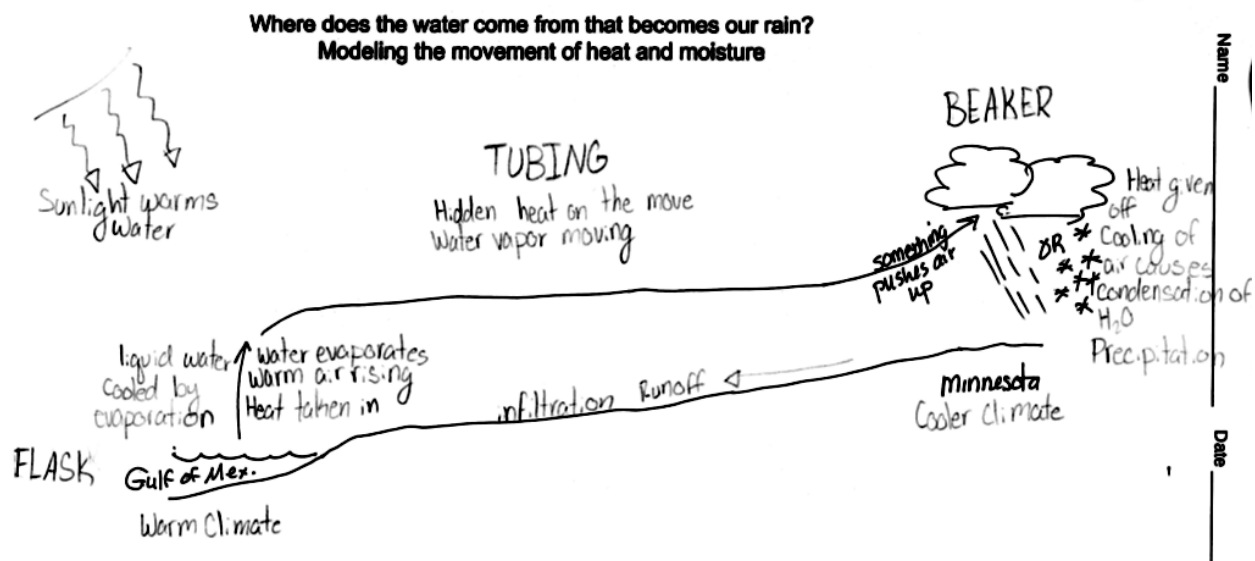 Where does the water come from that becomes our rain?
Modeling the movement of heat and moisture
Name
Date
Sunlight warms
water
TUBING
Hidden heat on the move
Water vapor moving
BEAKER
something
pushes air
up
OR
Heat given
off
Cooling of
air causes
condensation of
H₂O
Precipitation
liquid water
cooled by
evaporation
Water evaporates
warm air rising
Heat taken in
infiltration
Runoff
Minnesota
Cooler Climate
FLASK
Gulf of Mex.
Warm Climate